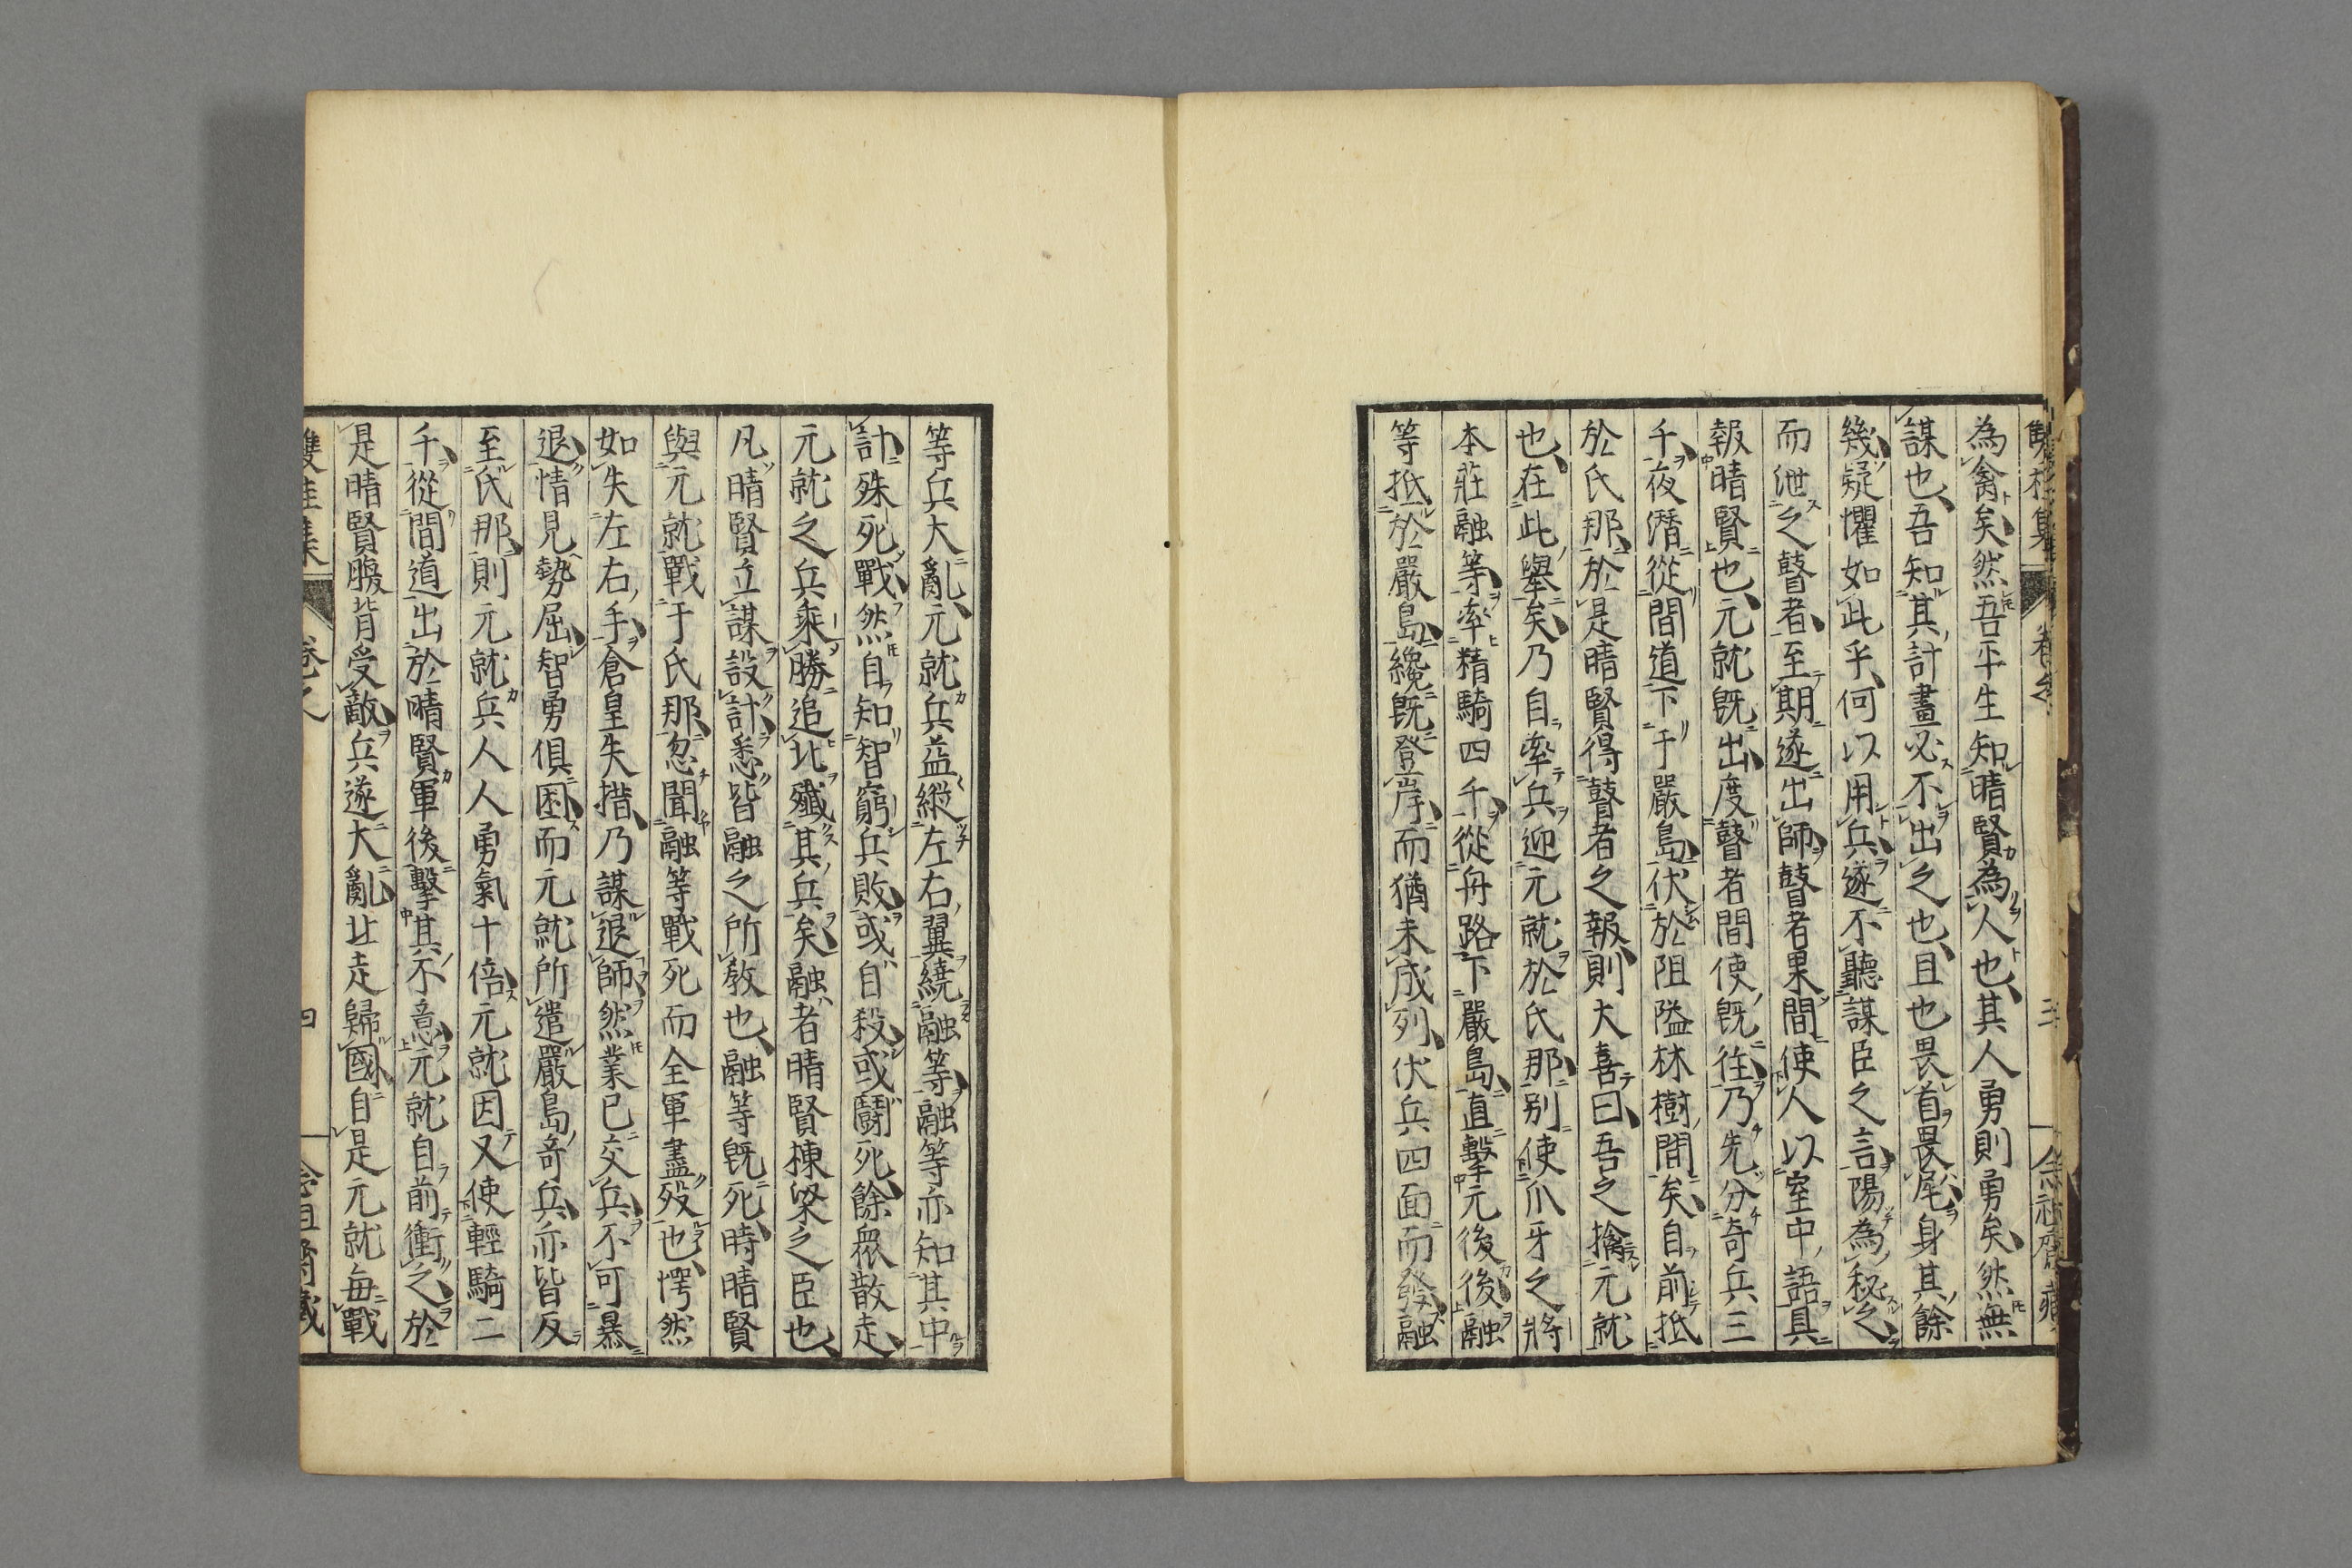 為禽矣然吾平生知晴賢為人也其人勇則勇矣然無
謀也吾知其計畫必不出之也且也畏首畏尾身其餘
幾疑懼如此乎何以用兵遂不聽謀臣之言陽為秘之
而泄之瞽者至期遂出師瞽者果間使人以室中語具
報晴賢也元就既出度瞽者間使既徃乃先分奇兵三
千夜潛從間道下于嚴島伏於阻隘林樹間矣自前抵
於氏那於是晴賢得瞽者之報則大喜曰吾之擒元就
也在此舉矣乃自率兵迎元就於氏那別使爪牙之將
本莊融等率精騎四千從舟路下嚴島直擊元後後融
等抵於嚴島纔既登岸而猶未成列伏兵四面而發融
等兵大亂元就兵益縱左右翼繞融等融等亦知其中
計殊死戰然自知智窮兵敗或自殺或鬪死餘眾散走
元就之兵乘勝追北殲其兵矣融者晴賢棟梁之臣也
凡晴賢立謀設計悉皆融之所教也融等既死時晴賢
與元就戰于氏那忽聞融等戰死而全軍盡歿也愕然
如失左右手倉皇失措乃謀退師然業已交兵不可暴
退情見勢屈智勇俱困而元就所遣嚴島奇兵亦皆反
至氏那則元就兵人人勇氣十倍元就因又使輕騎二
千從間道出於晴賢軍後擊其不意元就自前衝之於
是晴賢腹背受敵兵遂大亂北走歸國自是元就每戰
雙桂集
四